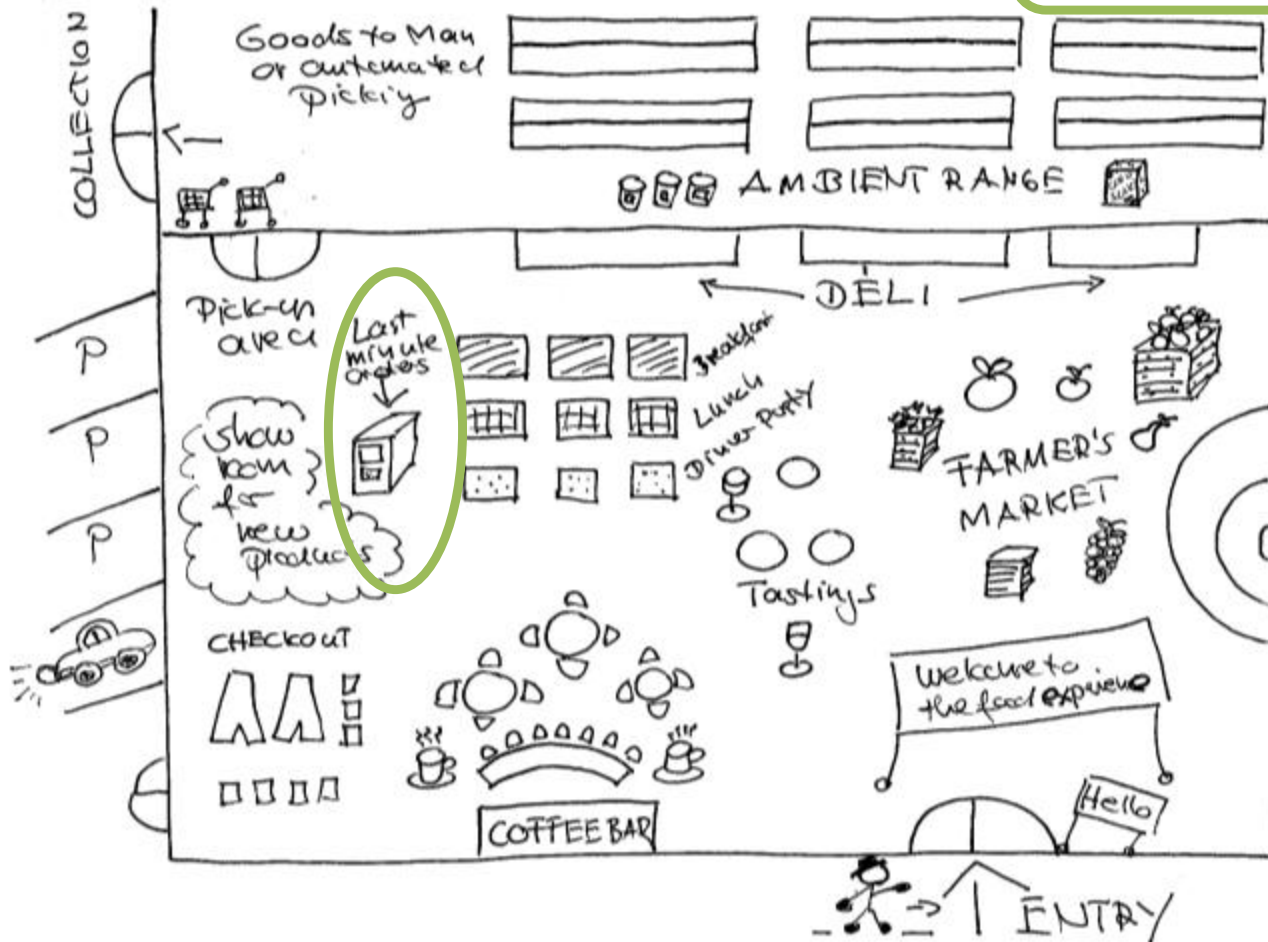 COLLECTION
Goods to Man
or automated
Picking
AMBIENT RANGE
DELI
Pick-up
area
Last
minute
orders
Breakfast
Lunch
Dinner-Party
P
P
P
show
room
for
new
products
FARMER'S
MARKET
Tastings
CHECKOUT
Welcome to
the food experience
Hello
COFFEE BAR
ENTRY